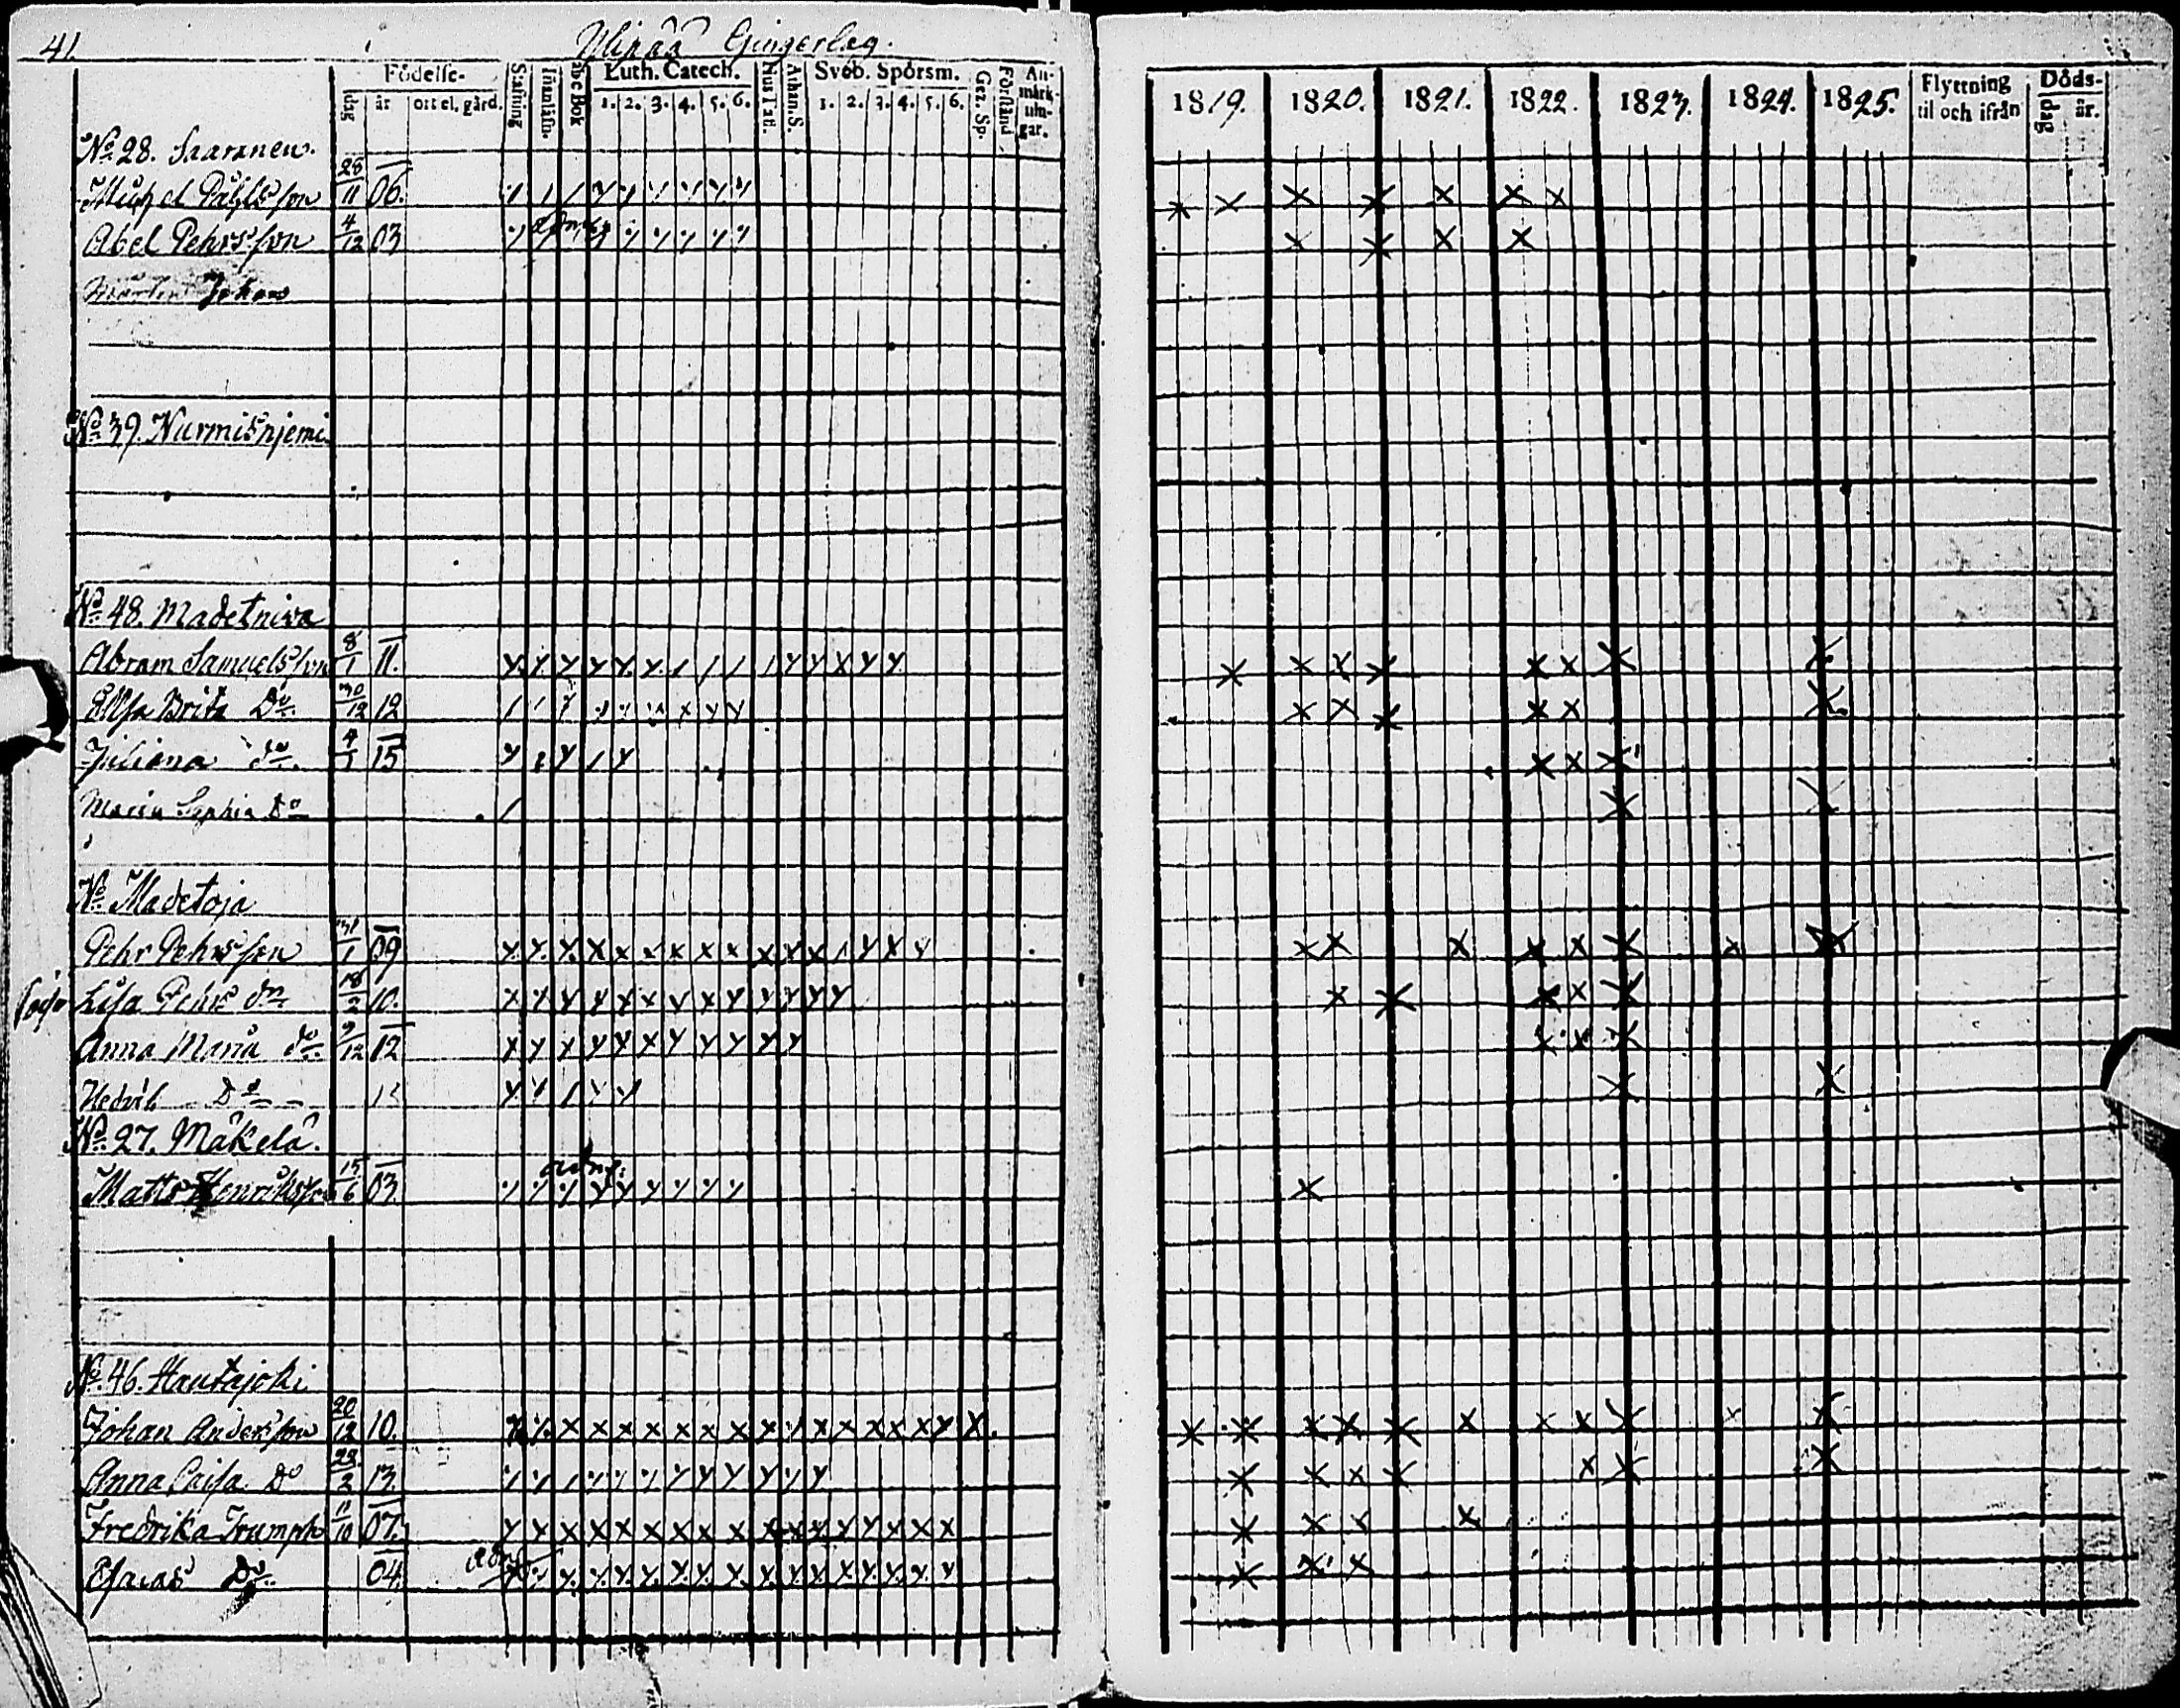 41.
Ylipää Gingerlag.
Födelse-
dag år ort el. gård.
Stafning Innanläsn. Abc Bok
Luth. Catech.
1. 2. 3. 4. 5. 6.
Hus Tafl. Athan. S.
Sveb. Spörsm.
1. 2. 3. 4. 5. 6.
Gez. Sp. Förstånd
An-
märk-
nin-
gar.
1819. 1820. 1821. 1822. 1823. 1824. 1825.
Flyttning
til och ifrån
Döds-
dag år.
No 28. Saaranen.
Michel Påhlsson 28/11 06.
Abel Pehrsson 4/12 03
Johan
No 39. Nurmisnjemi
No 48. Madetniva
Abram Samuelsson 8/1 11.
Elsa Brita Do. 30/12 12
Juliana do. 4/1 15
Maria Sophia Do
No Madetoja
Pehr Pehrsson 31/1 09
Lisa Pehrs dr. 18/2 10.
Anna Maria do. 9/12 12
Hedvik Do
No 27. Mäkelä.
Matts Henriksson 15/6 03.
No 46. Hautajoki
Johan Andersson 20/12 10.
Anna Caisa Do 22/2 13.
Fredrika Trumph 11/10 07.
Esaias Do. 04.